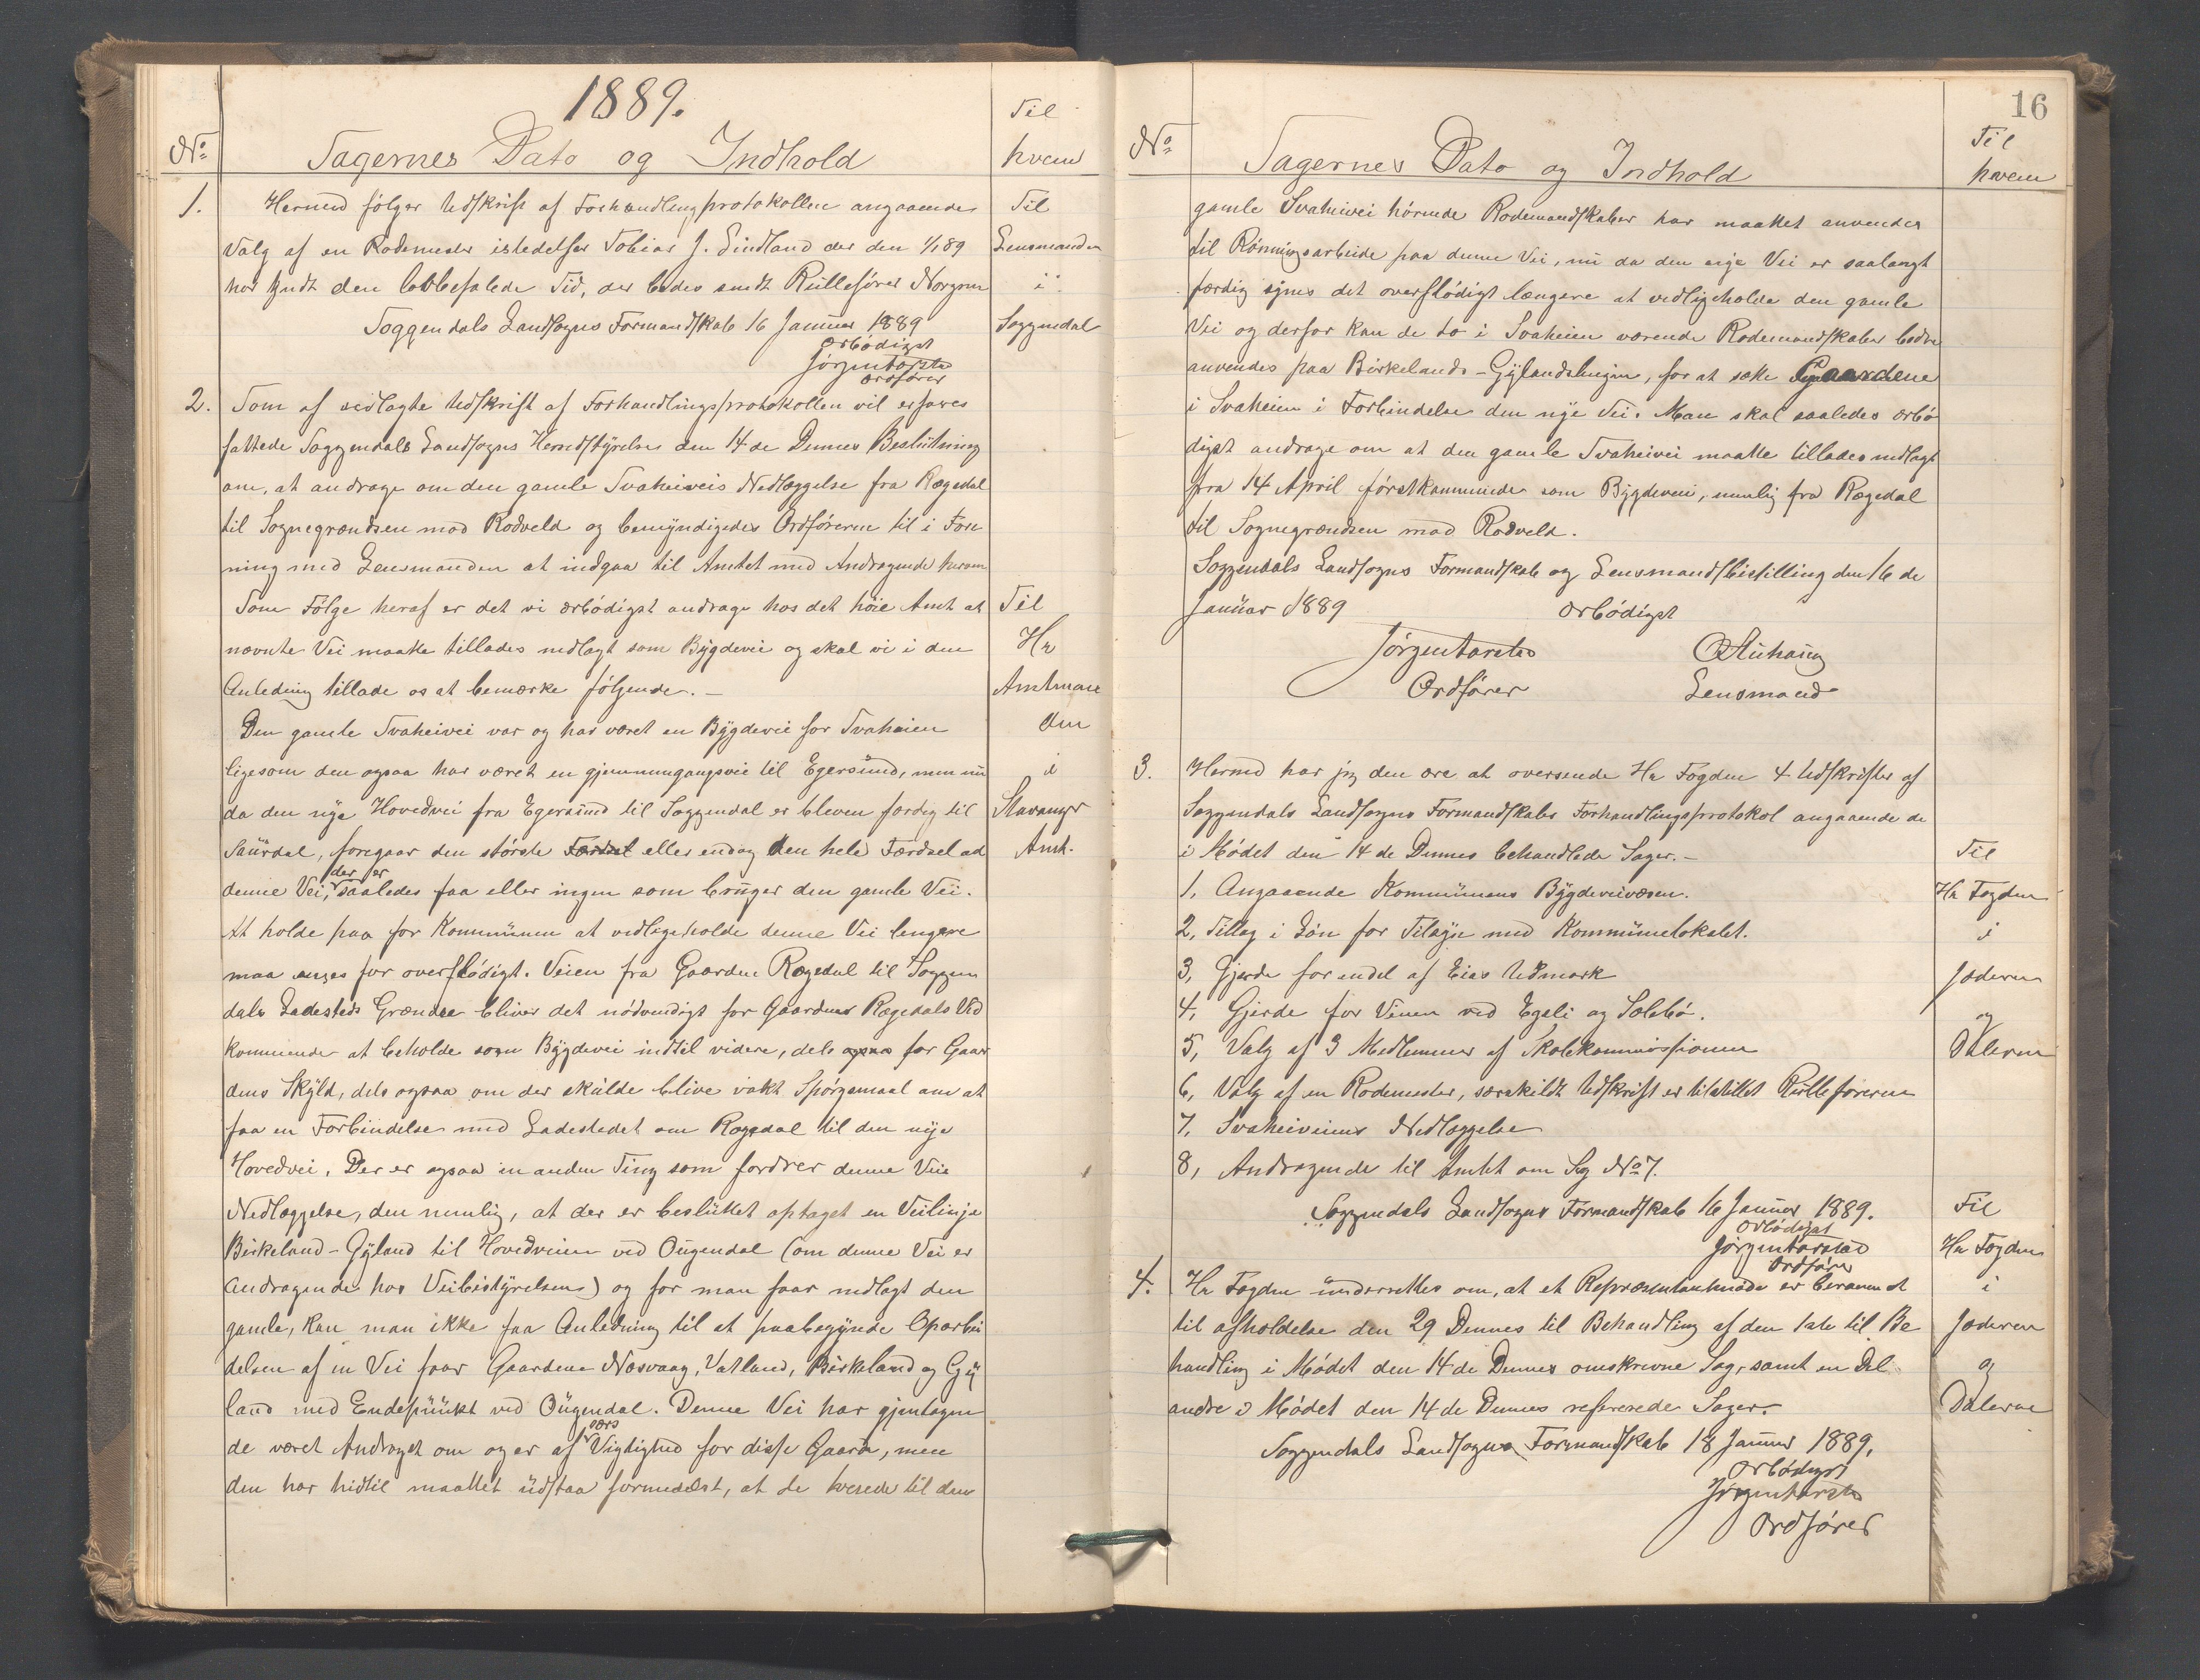 1889.
No Sagernes Dato og Indhold Til hvem
1. Hermed følger Udskrift af Forhandlingsprotokollen angaaende Til
Valg af en Rodemester istedetfor Tobias J. Lindland der den 1/1 89 Lensmanden
har  den befalede Tid, der bedes sendt Rulleføreren i
Soggendals Landsogns Formandskab 16 Januar 1889 Soggendal
ærbødigst
Jørgen Tarstad
Ordfører
2. Som af vedlagte Udskrift af Forhandlingsprotokollen vil erfares
fattede Soggendals Landsogns Herredstyrelse den 14de Dennes Beslutning
om, at andrage om den gamle Svaheiveis Nedlæggelse fra Rægedal
til Sognegrændsen mod Rodveld og bemyndigedes Ordføreren til i Fore
ning med Lensmanden at indgaa til Amtet med Andragende herom
Som Følge heraf er det vi ærbødigst andrage hos det høie Amt at Til
nævnte Vei maatte tillades nedlagt som Bygdevei og skal vi i den Hr
Anledning tillade os at bemærke følgende.— Amtman
Den gamle Svaheivei var og har været en Bygdevei for Svaheien den
ligesom den ogsaa har været en gjennemgangsvei til Egersund, men nu i
da den nye Hovedvei fra Egersund til Soggendal er bleven færdig til Stavanger
Saurdal, foregaar den største eller endog den hele Færdsel ad Amt.
denne Vei, der er saaledes faa eller ingen som bruger den gamle Vei.
At holde paa for Kommunen at vedligeholde denne Vei længere
maa ansees for overflødigt. Veien fra Gaarden Rægedal til Soggen
dals Ladesteds Grændse bliver det nødvendigt for Gaarden Rægedals Ved
kommende at beholde som Bygdevei indtil videre, dels for Gaar
dens Skyld, dels ogsaa om der skulde blive vakt Spørgsmaal om at
faa en Forbindelse med Ladestedet om Rægedal til den nye
Hovedvei. Der er ogsaa en anden Ting som fordrer denne Veis
Nedlæggelse, den nemlig, at der er besluttet optaget en Veilinje
Birkeland-Gyland til Hovedveien ved Ougendal (om denne Vei er
Andragende hos Veibestyrelsens) og før man faar nedlagt den
gamle, kan man ikke faa Anledning til at paabegynde Oparbei
delsen af en Vei for Gaardene Nesvaag, Vatland, Birkeland og Gy
land med Endepunkt ved Ougendal. Denne Vei har gjentagen
de været Andraget om og er af særs Vigtighed for disse Gaarde, men
den har hidtil maattet udstaa formedelst, at de til den
16
No Sagernes Dato og Indhold Til hvem
gamle Svaheivei hørende Rodemandskaber har maattet anvendes
til Rønningsarbeide paa denne Vei, nu da den nye Vei er saalangt
færdig synes det overflødigt længere at vedligeholde den gamle
Vei og derfor kan de to i Svaheien værende Rodemandskaber bedre
anvendes paa Birkelands-Gylandslinjen, for at sætte Gaardene
i Svaheien i Forbindelse den nye Vei. Man skal saaledes ærbø
digst andrage om at den gamle Svaheivei maatte tillades nedlagt
fra 14 April førstkommende som Bygdevei, nemlig fra Rægedal
til Sognegrændsen mod Rodveld.
Soggendals Landsogns Formandskab og Lensmandsbestilling den 16de
Januar 1889 ærbødigst
Jørgen Tarstad
Ordfører Lensmand
3. Hermed har jeg den ære at oversende Hr Fogden 4 Udskrifter af
Soggendals Landsogns Formandskabs Forhandlingsprotokol angaaende de
i Mødet den 14de Dennes behandlede Sager.— Til
1, Angaaende Kommunens Bygdeveivæsen. Hr Fogden
2, Tillæg i Løn for Tilsyn med Kommunelokalet. i
3, Gjerde for endel af Eias Udmark Jæderen
4, Gjerde for Veien ved Egeli og Solebø. og
5, Valg af 3 Medlemmer af Skolekommissionen Dalerne
6, Valg af en Rodemester, særskildt Udskrift er tilstillet Rulleføreren
7, Svaheiveiens Nedlæggelse
8, Andragende til Amtet om Sag No 7.
Soggendals Landsogns Formandskab 16 Januar 1889. Til
ærbødigst
Jørgen Tarstad Hr Fogden
Ordfører
4. Hr Fogden underrettes om, at et Repræsentantmøde er berammet i
til afholdelse den 29 Dennes til Behandling af den 1ste til Be Jæderen
handling i Mødet den 14de Dennes omskrevne Sag, samt en Del og
andre i Mødet den 14de Dennes refererede Sager. Dalerne
Soggendals Landsogns Formandskab 18 Januar 1889.
Ærbødigst
Jørgen Tarstad
Ordfører